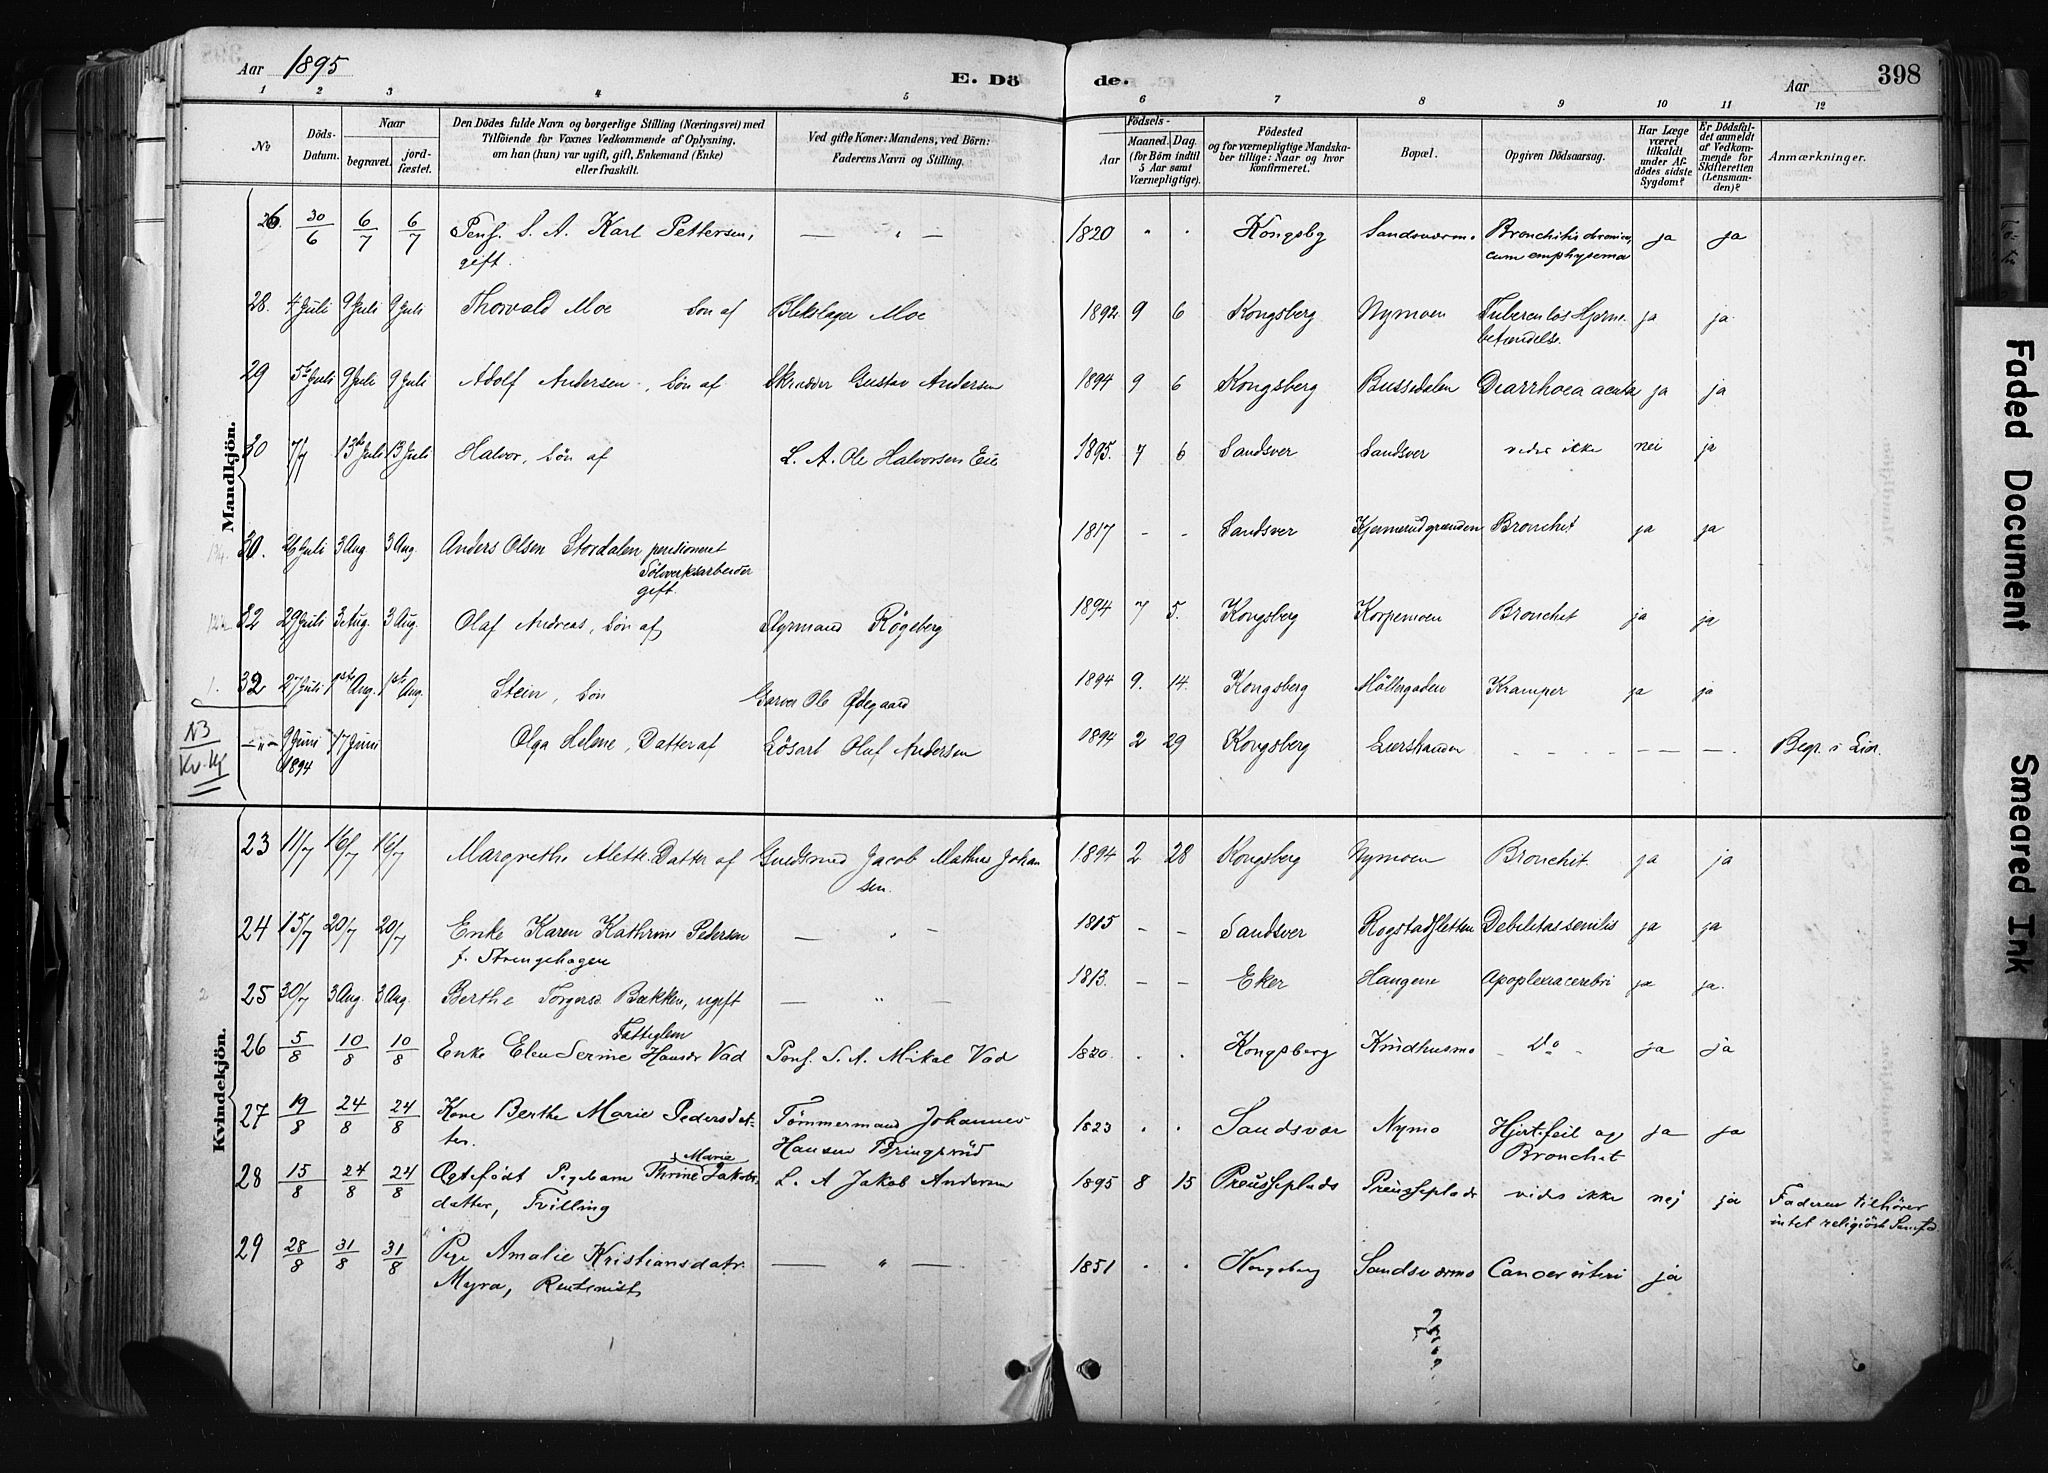 Aar 1895 E. Dö de. Aar 398
1 2 3 4 5 6 7 8 9 10 11 12
No
Döds-Datum.
Naar
begravet.
jord-fæstet.
Den Dödes fulde Navn og borgerlige Stilling (Næringsvei) med
Tilföiende for Voxnes Vedkommende af Oplysning,
om han (hun) var ugift, gift, Enkemand (Enke)
eller fraskilt.
Ved gifte Koner: Mandens, ved Börn:
Faderens Navn og Stilling.
Födsels-
Aar
Maaned. Dag.
(for Börn indtil
5 Aar samt
Værnepligtige).
Födested
og for værnepligtige Mandska-
ber tillige: Naar og hvor
konfirmeret.
Bopæl.
Opgiven Dödsaarsag.
Har Læge
været
tilkaldt
under Af-
dödes sidste
Sygdom?
Er Dödsfal-
det anmeldt
af Vedkom-
mende for
Skifteretten
(Lensman-
den)?
Anmærkninger.
Mandkjön.
26. 30/6 6/7 6/7 Penf. S. A. Karl Pettersen, — " — 1820 " " Kongsbg Sandsværmo Bronchitis chronica, ja ja
gift. cum emphysema
28. 4 Juli 9 Juli 9 Juli Thorvald Moe Søn af Blikslager Moe 1892 9 6 Kongsberg Nymoen Tuberculøs Hjerne- ja ja.
betændelse.
29 5te Juli 9 Juli 9 Juli Adolf Andersen, Søn af Skrædder Gustav Andersen 1894 9 6 Kongsberg Bussedalen Diarrhoea acuta ja ja
30 7/7 13de Juli 13 Juli Halvor, Søn af L. A. Ole Halvorsen Eie 1895. 7 6 Sandsver Sandsver vides ikke nei ja
30. 26 Juli 3 Aug 3 Aug. Anders Olsen Stordalen pensioneret 1817 - - Sandsver Kjernerudgrænden Bronchit ja ja
Sølverksarbeider
gift.
32 29 Juli 3 Aug. 3 Aug. Olaf Andreas, Søn af Styrmand Røgeberg 1894 7 5. Kongsberg Korpemoen Bronchit ja ja
1. 32 27 Juli 1ste Aug. 1ste Aug. Stein, Søn Garver Ole Ødegaard 1894 9. 14. Kongsberg Møllergaden Kramper ja ja
NB
Kv.kj
—"— 9 Juni 17 Juni Olga Helene, Datter af Løsarb. Olaf Andersen 1894 2 29 Kongsberg - - - - — — —. Begr. i Lier.
1894
Kvindekjön.
23 11/7 16/7 16/7 Margrethe Alette. Datter af Guldsmed Jacob Mathias Johan 1894 2 28 Kongsberg Nymoen Bronchit. ja ja
sen.
24 15/7 20/7 20/7 Enke Karen Kathrine Pedersen — " — 1815 - - Sandsver Rogstadsletten Debilitas senilis ja ja
f. Strengehagen
2 25 30/7 3 Aug. 3 Aug. Berthe Torgersd. Bakken, ugift — " — 1813. - - Eker Haugene Apoplexia cerebri ja ja.
Fattiglem
26 5/8 10/8 10/8 Enke Elen Serine Hansdr Vad Penf. S. A. Mikal Vad 1820. . . Kongsberg Knudhusmo - Do - ja ja
27 19/8 24/8 24/8 Kone Berthe Marie Pedersdat- Tømmermand Johannes 1823 . . Sandsvær Nymo Hjertefeil og ja ja
ter. Hansen Bringsrud Bronchit
Marie
28 15/8 24/8 24/8 Ægtefødt Pigebarn Thrine Jakobs- L. A Jakob Andersen 1895 8 15 Preusseplads Preusseplads vides ikke nej ja Faderen tilhører
datter, Tvilling intet religiøst Samfd.
29 28/8 31/8 31/8 Pige Amalie Kristiansdatr. — " — 1851 . . Kongsberg Sandsværmo Cancer uteri ja
Myra, Rentenist
Faded Document
Smeared Ink